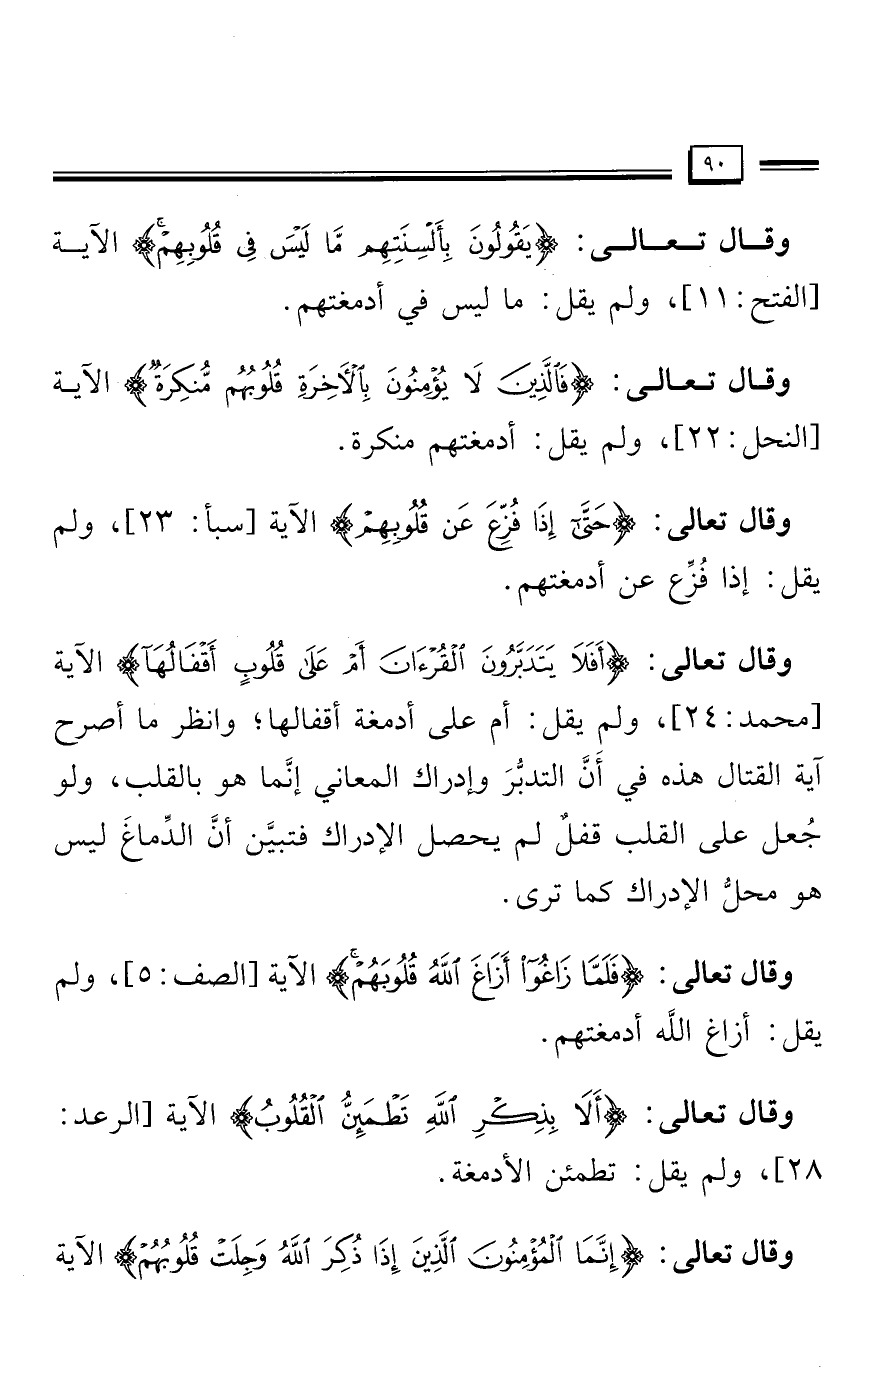 ٩٠
وقـال تـعـالـى: ﴿يَقُولُونَ بِأَلْسِنَتِهِم مَّا لَيْسَ فِى قُلُوبِهِمْۚ﴾ الآيـة
[الفتح: ١١]، ولم يقل: ما ليس في أدمغتهم.
وقـال تـعـالـى: ﴿فَٱلَّذِينَ لَا يُؤْمِنُونَ بِٱلْأَخِرَةِ قُلُوبُهُم مُّنكِرَةٌ﴾ الآيـة
[النحل: ٢٢]، ولم يقل: أدمغتهم منكرة.
وقال تعالى: ﴿حَتَّىٰٓ إِذَا فُزِّعَ عَن قُلُوبِهِمْ﴾ الآية [سبأ: ٢٣]، ولم
يقل: إذا فُزِّع عن أدمغتهم.
وقال تعالى: ﴿أَفَلَا يَتَدَبَّرُونَ ٱلْقُرْءَانَ أَمْ عَلَىٰ قُلُوبٍ أَقْفَالُهَآ﴾ الآية
[محمد: ٢٤]، ولم يقل: أم على أدمغة أقفالها؛ وانظر ما أصرح
آية القتال هذه في أَنَّ التدبُّرَ وإدراك المعاني إنَّما هو بالقلب، ولو
جُعل على القلب قفلٌ لم يحصل الإدراك فتبيَّن أنَّ الدِّماغَ ليس
هو محلُّ الإدراك كما ترى.
وقال تعالى: ﴿فَلَمَّا زَاغُوٓا۟ أَزَاغَ ٱللَّهُ قُلُوبَهُمْۚ﴾ الآية [الصف: ٥]، ولم
يقل: أزاغ اللَّه أدمغتهم.
وقال تعالى: ﴿أَلَا بِذِكْرِ ٱللَّهِ تَطْمَئِنُّ ٱلْقُلُوبُ﴾ الآية [الرعد:
٢٨]، ولم يقل: تطمئن الأدمغة.
وقال تعالى: ﴿إِنَّمَا ٱلْمُؤْمِنُونَ ٱلَّذِينَ إِذَا ذُكِرَ ٱللَّهُ وَجِلَتْ قُلُوبُهُمْ﴾ الآية